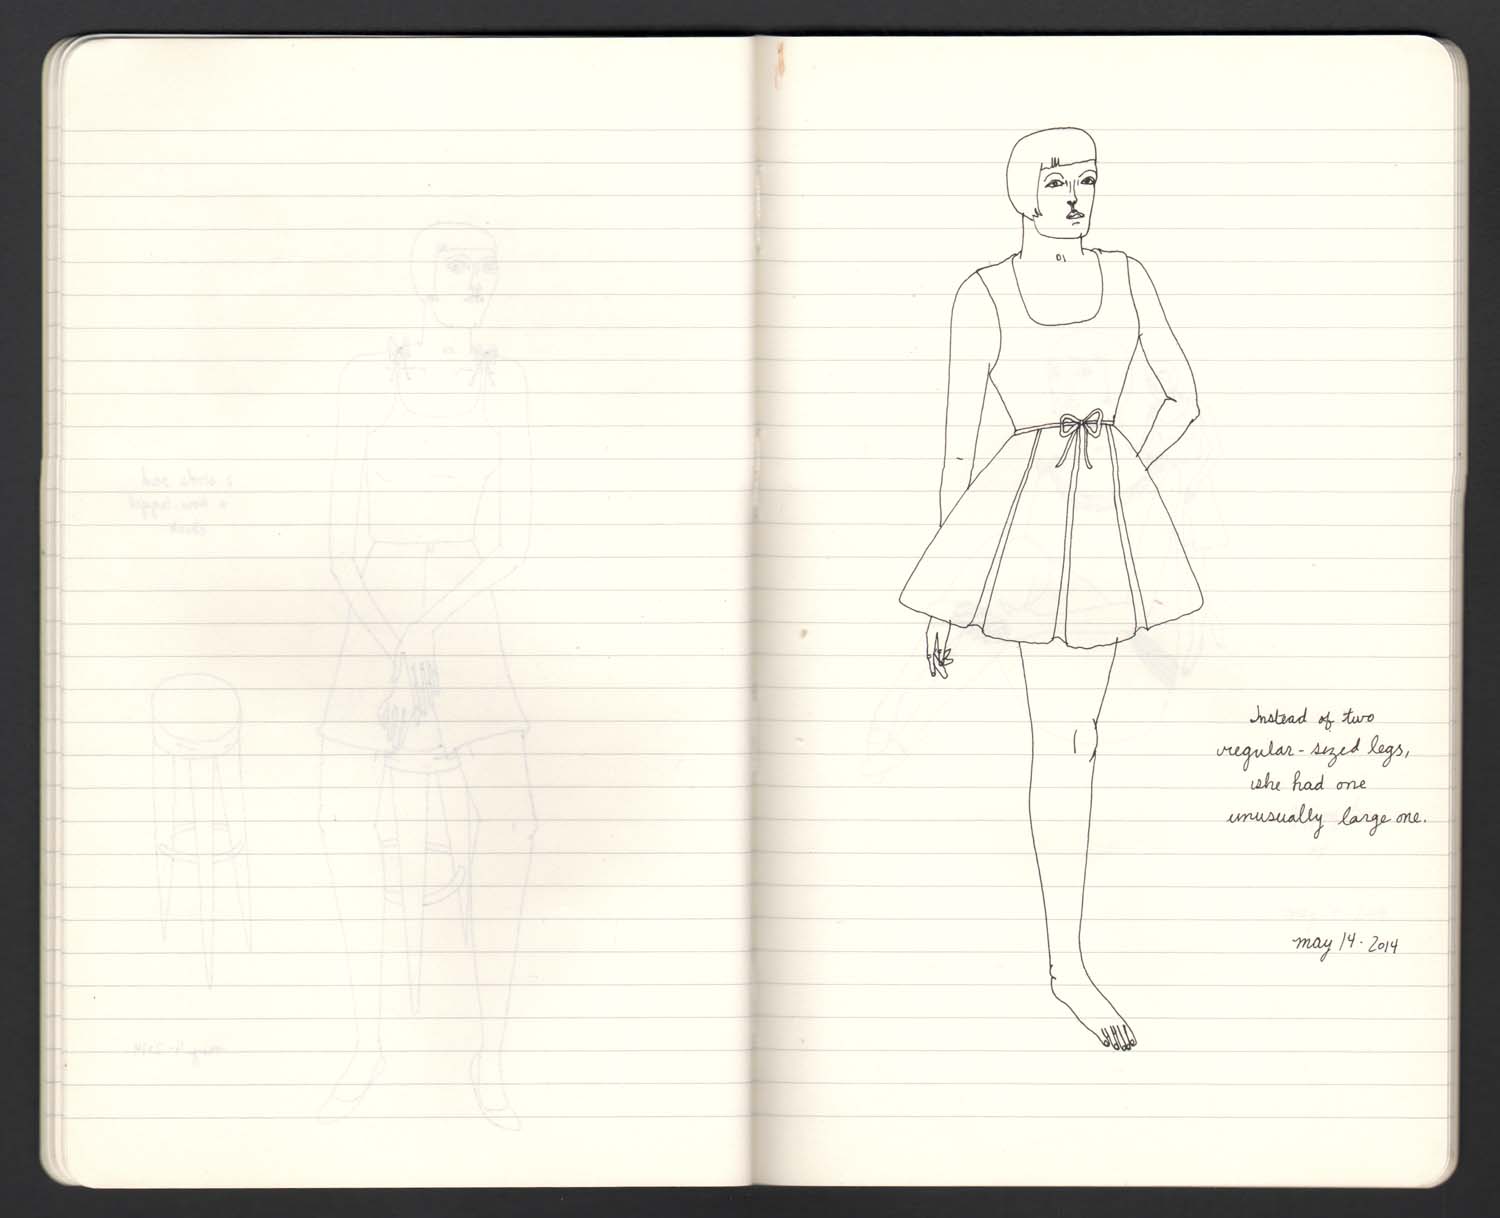 Instead of two
regular-sized legs,
she had one
unusually large one.
may 14. 2014